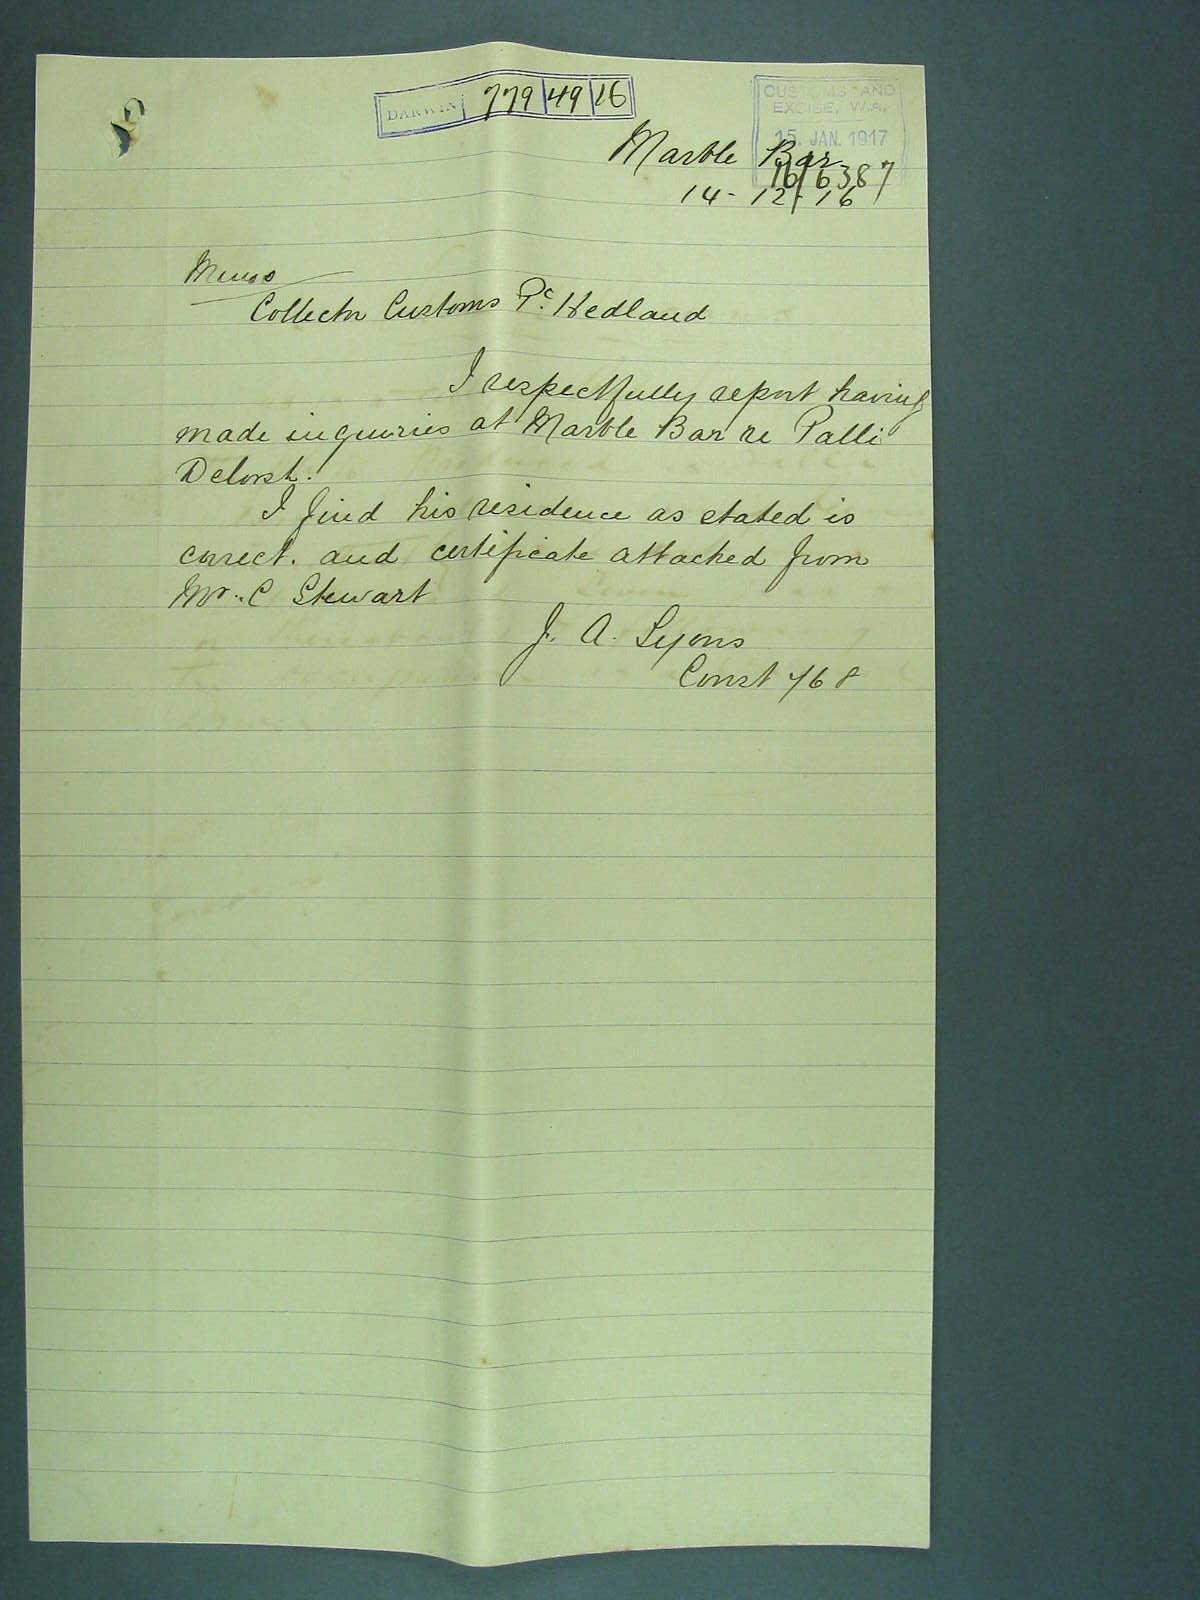 DARWIN 779 49 16
CUSTOMS AND
EXCISE, W.A.
15. JAN. 1917
Marble Bar
16/6387
14-12-16
Memo
Collector Customs Pt. Hedland
I respectfully report having
made inquiries at Marble Bar re Palli
Delorst.
I find his residence as stated is
correct. and certificate attached from
Mr. C Stewart
J. A. Lyons
Const 768